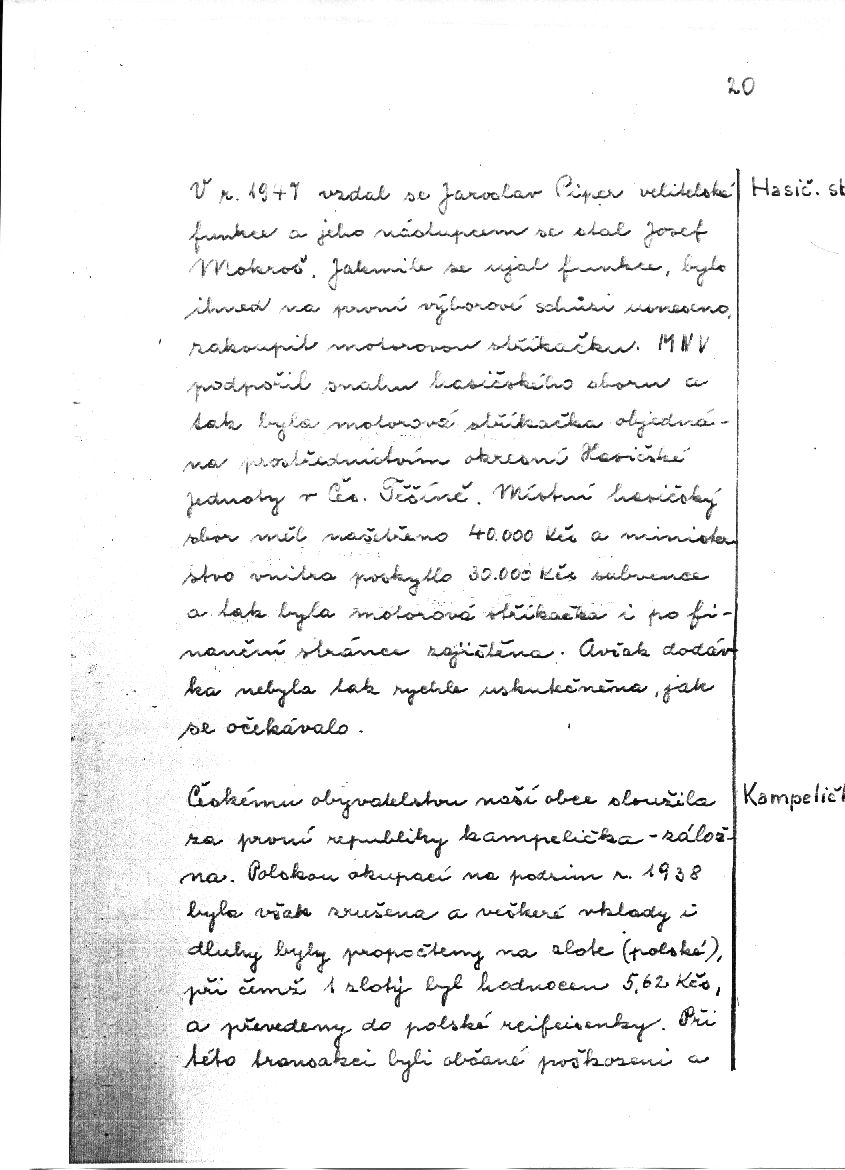 20
V r. 1947 vzdal se Jaroslav Piper velitelské
Hasič. st
funkce a jeho nástupcem se stal Josef
Mokroš. Jakmile se ujal funkce, bylo
ihned na první výborové schůzi usneseno,
zakoupit motorovou stříkačku. MNV
podpořil snahu hasičského sboru a
tak byla motorová stříkačka objedná-
na prostřednictvím okresní Hasičské
jednoty v Čes. Těšíně. Místní hasičský
sbor měl našetřeno 40.000 Kčs a minister
stvo vnitra poskytlo 30.000 Kčs subvence
a tak byla motorová stříkačka i po fi-
nanční stránce zajištěna. Avšak dodáv
ka nebyla tak rychle uskutečněna, jak
se očekávalo.
Českému obyvatelstvu naší obce sloužila
Kampeličk
za první republiky kampelička - zálož-
na. Polskou okupací na podzim r. 1938
byla však zrušena a veškeré vklady i
dluhy byly propočteny na zloté (polské),
při čemž 1 zlotý byl hodnocen 5,62 Kčs,
a převedeny do polské reifeisenky. Při
této transakci byli občané poškozeni a